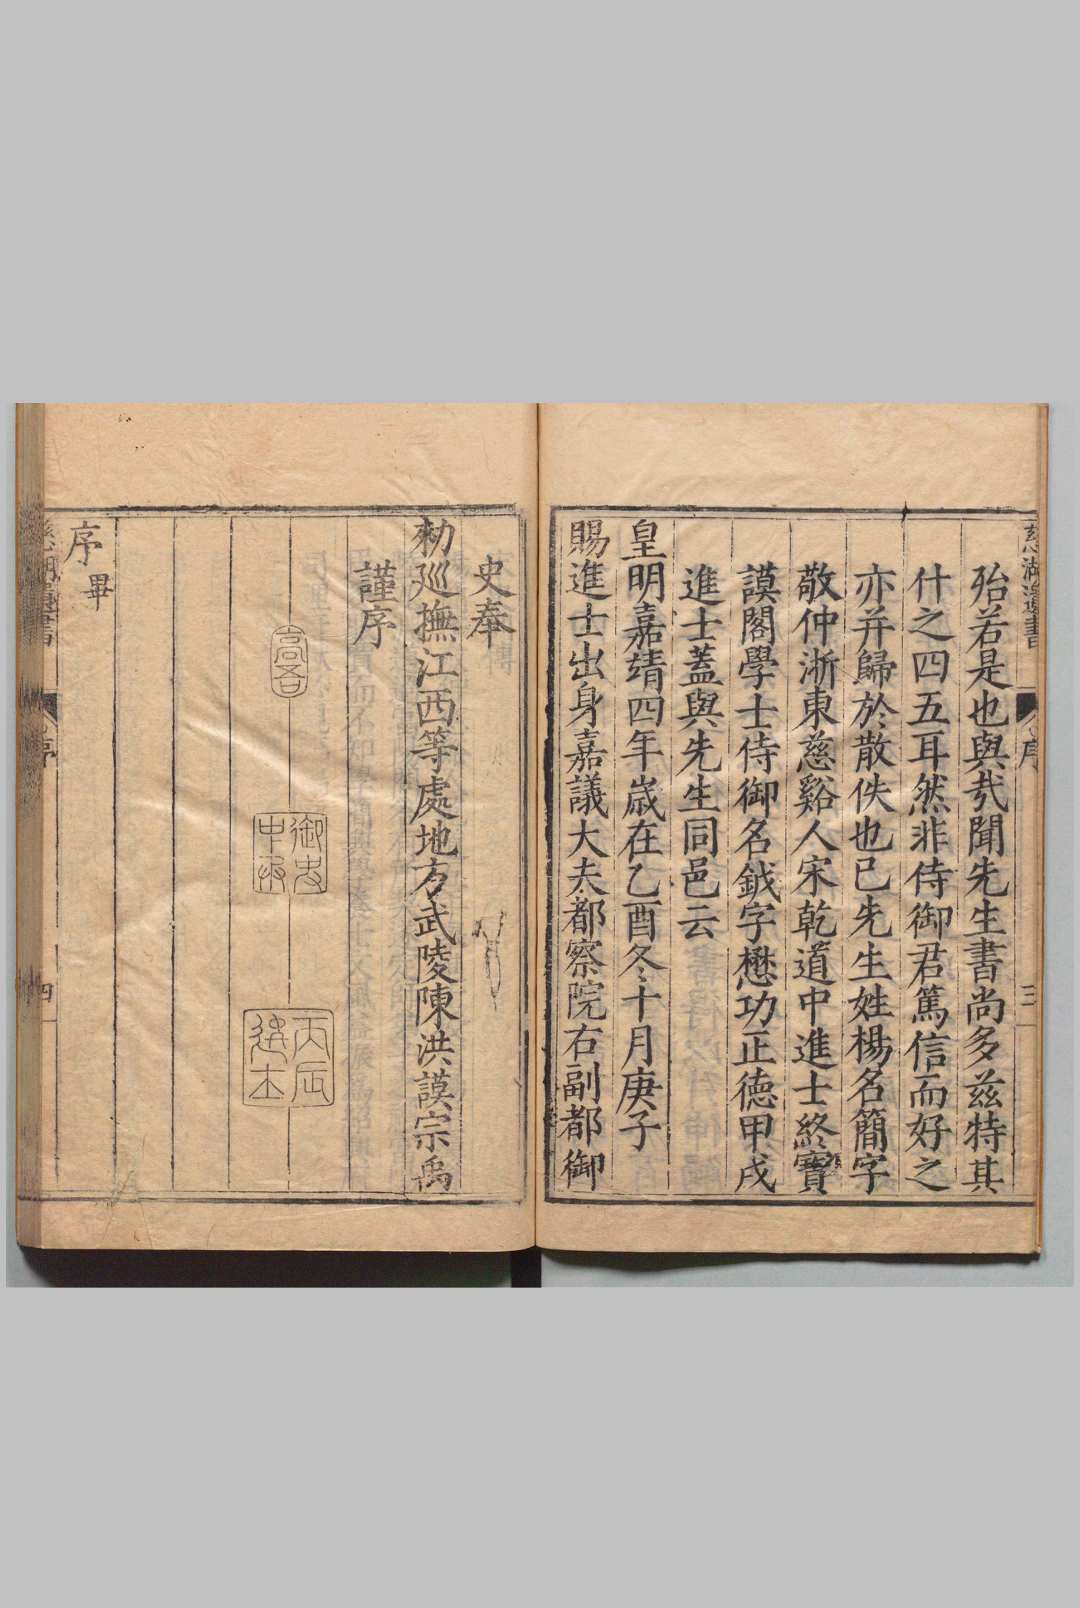 慈湖遺書
序
三
殆若是也與㢤聞先生書尚多茲特其
什之四五耳然非侍御君篤信而好之
亦并歸於散佚也已先生姓楊名簡字
敬仲浙東慈谿人宋乾道中進士終寶
謨閣學士侍御名鉞字懋功正德甲戌
進士蓋與先生同邑云
皇明嘉靖四年歲在乙酉冬十月庚子
賜進士出身嘉議大夫都察院右副都御
史奉
勑巡撫江西等處地方武陵陳洪謨宗禹
謹序
高吾
御史中丞
丙辰進士
序畢
慈湖遺書
序
四